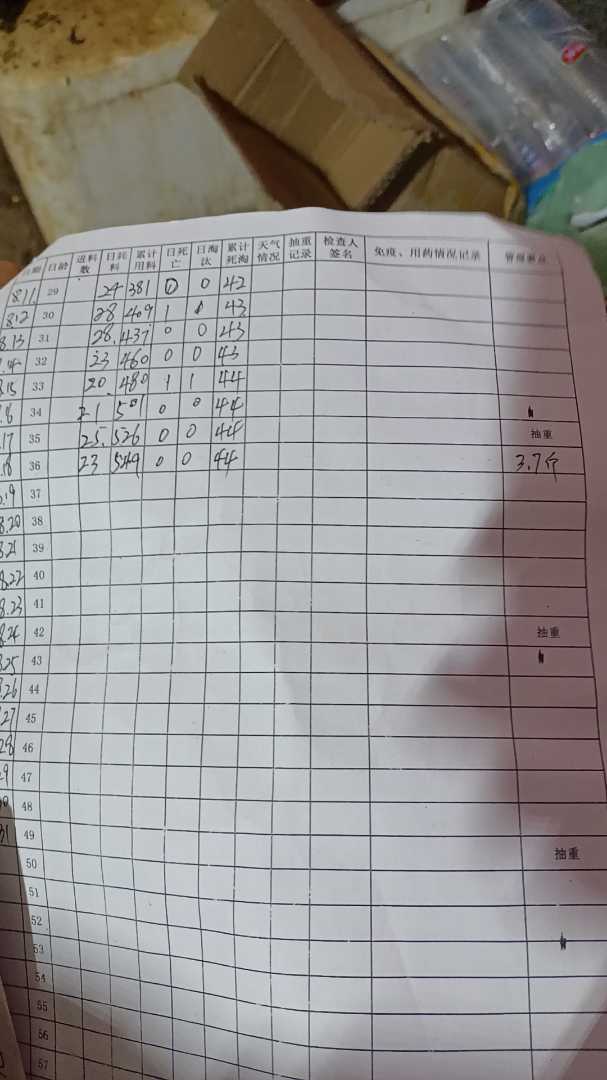 日期 日龄 进料数 日耗料 累计用料 日死亡 日淘汰 累计死淘 天气情况 抽重记录 检查人签名 免疫、用药情况记录
8.11 29 24 381 0 0 42
8.12 30 28 409 1 43
8.13 31 28. 437 0 0 43
32 23 460 0 0 43
33 20. 480 1 1 44
34 21 501 0 0 44
17 35 25. 526 0 0 44 抽重
18 36 23 549 0 0 44 3.7斤
.19 37
8.20 38
8.21 39
8.22 40
8.23 41
8.24 42 抽重
.25 43
.26 44
27 45
28 46
29 47
48
31 49
50 抽重
51
52
53
54
55
56
57